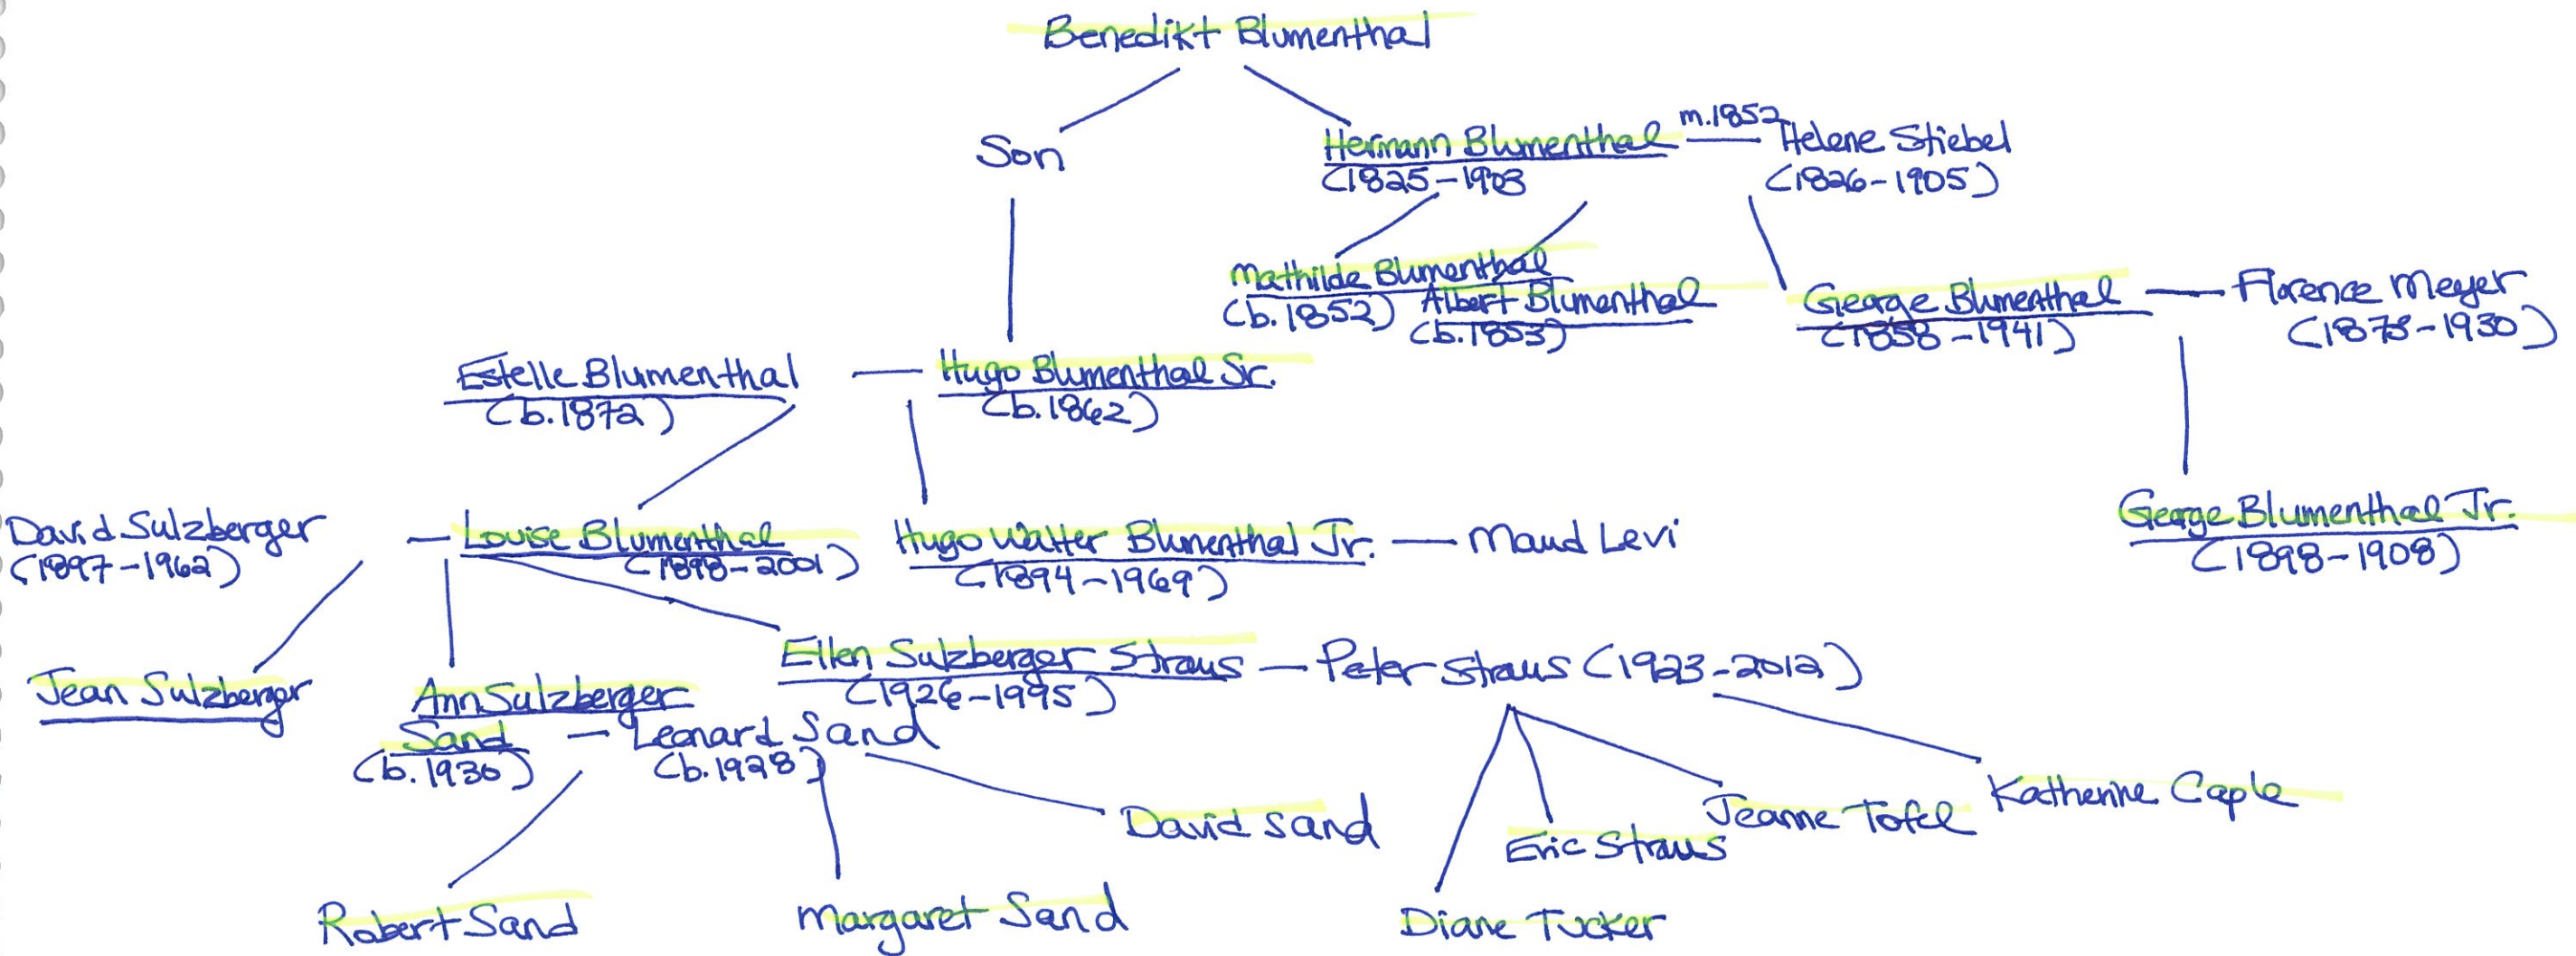 Benedikt Blumenthal
Son
Hermann Blumenthal
(1825-1903
m.1852
Helene Stiebel
(1826-1905)
Mathilde Blumenthal
(b.1852)
Albert Blumenthal
(b.1853)
George Blumenthal
(1858-1941)
Florence Meyer
(1873-1930)
Estelle Blumenthal
(b.1872)
Hugo Blumenthal Sr.
(b.1862)
David Sulzberger
(1897-1962)
Louise Blumenthal
(1898-2001)
Hugo Walter Blumenthal Jr.
(1894-1969)
Maud Levi
George Blumenthal Jr.
(1898-1908)
Jean Sulzberger
Ann Sulzberger
Sand
(b.1930)
Leonard Sand
(b.1928)
Ellen Sulzberger Straus
(1926-1995)
Peter Straus (1923-2012)
Robert Sand
Margaret Sand
David Sand
Diane Tucker
Eric Straus
Jeanne Tofel
Katherine Caple